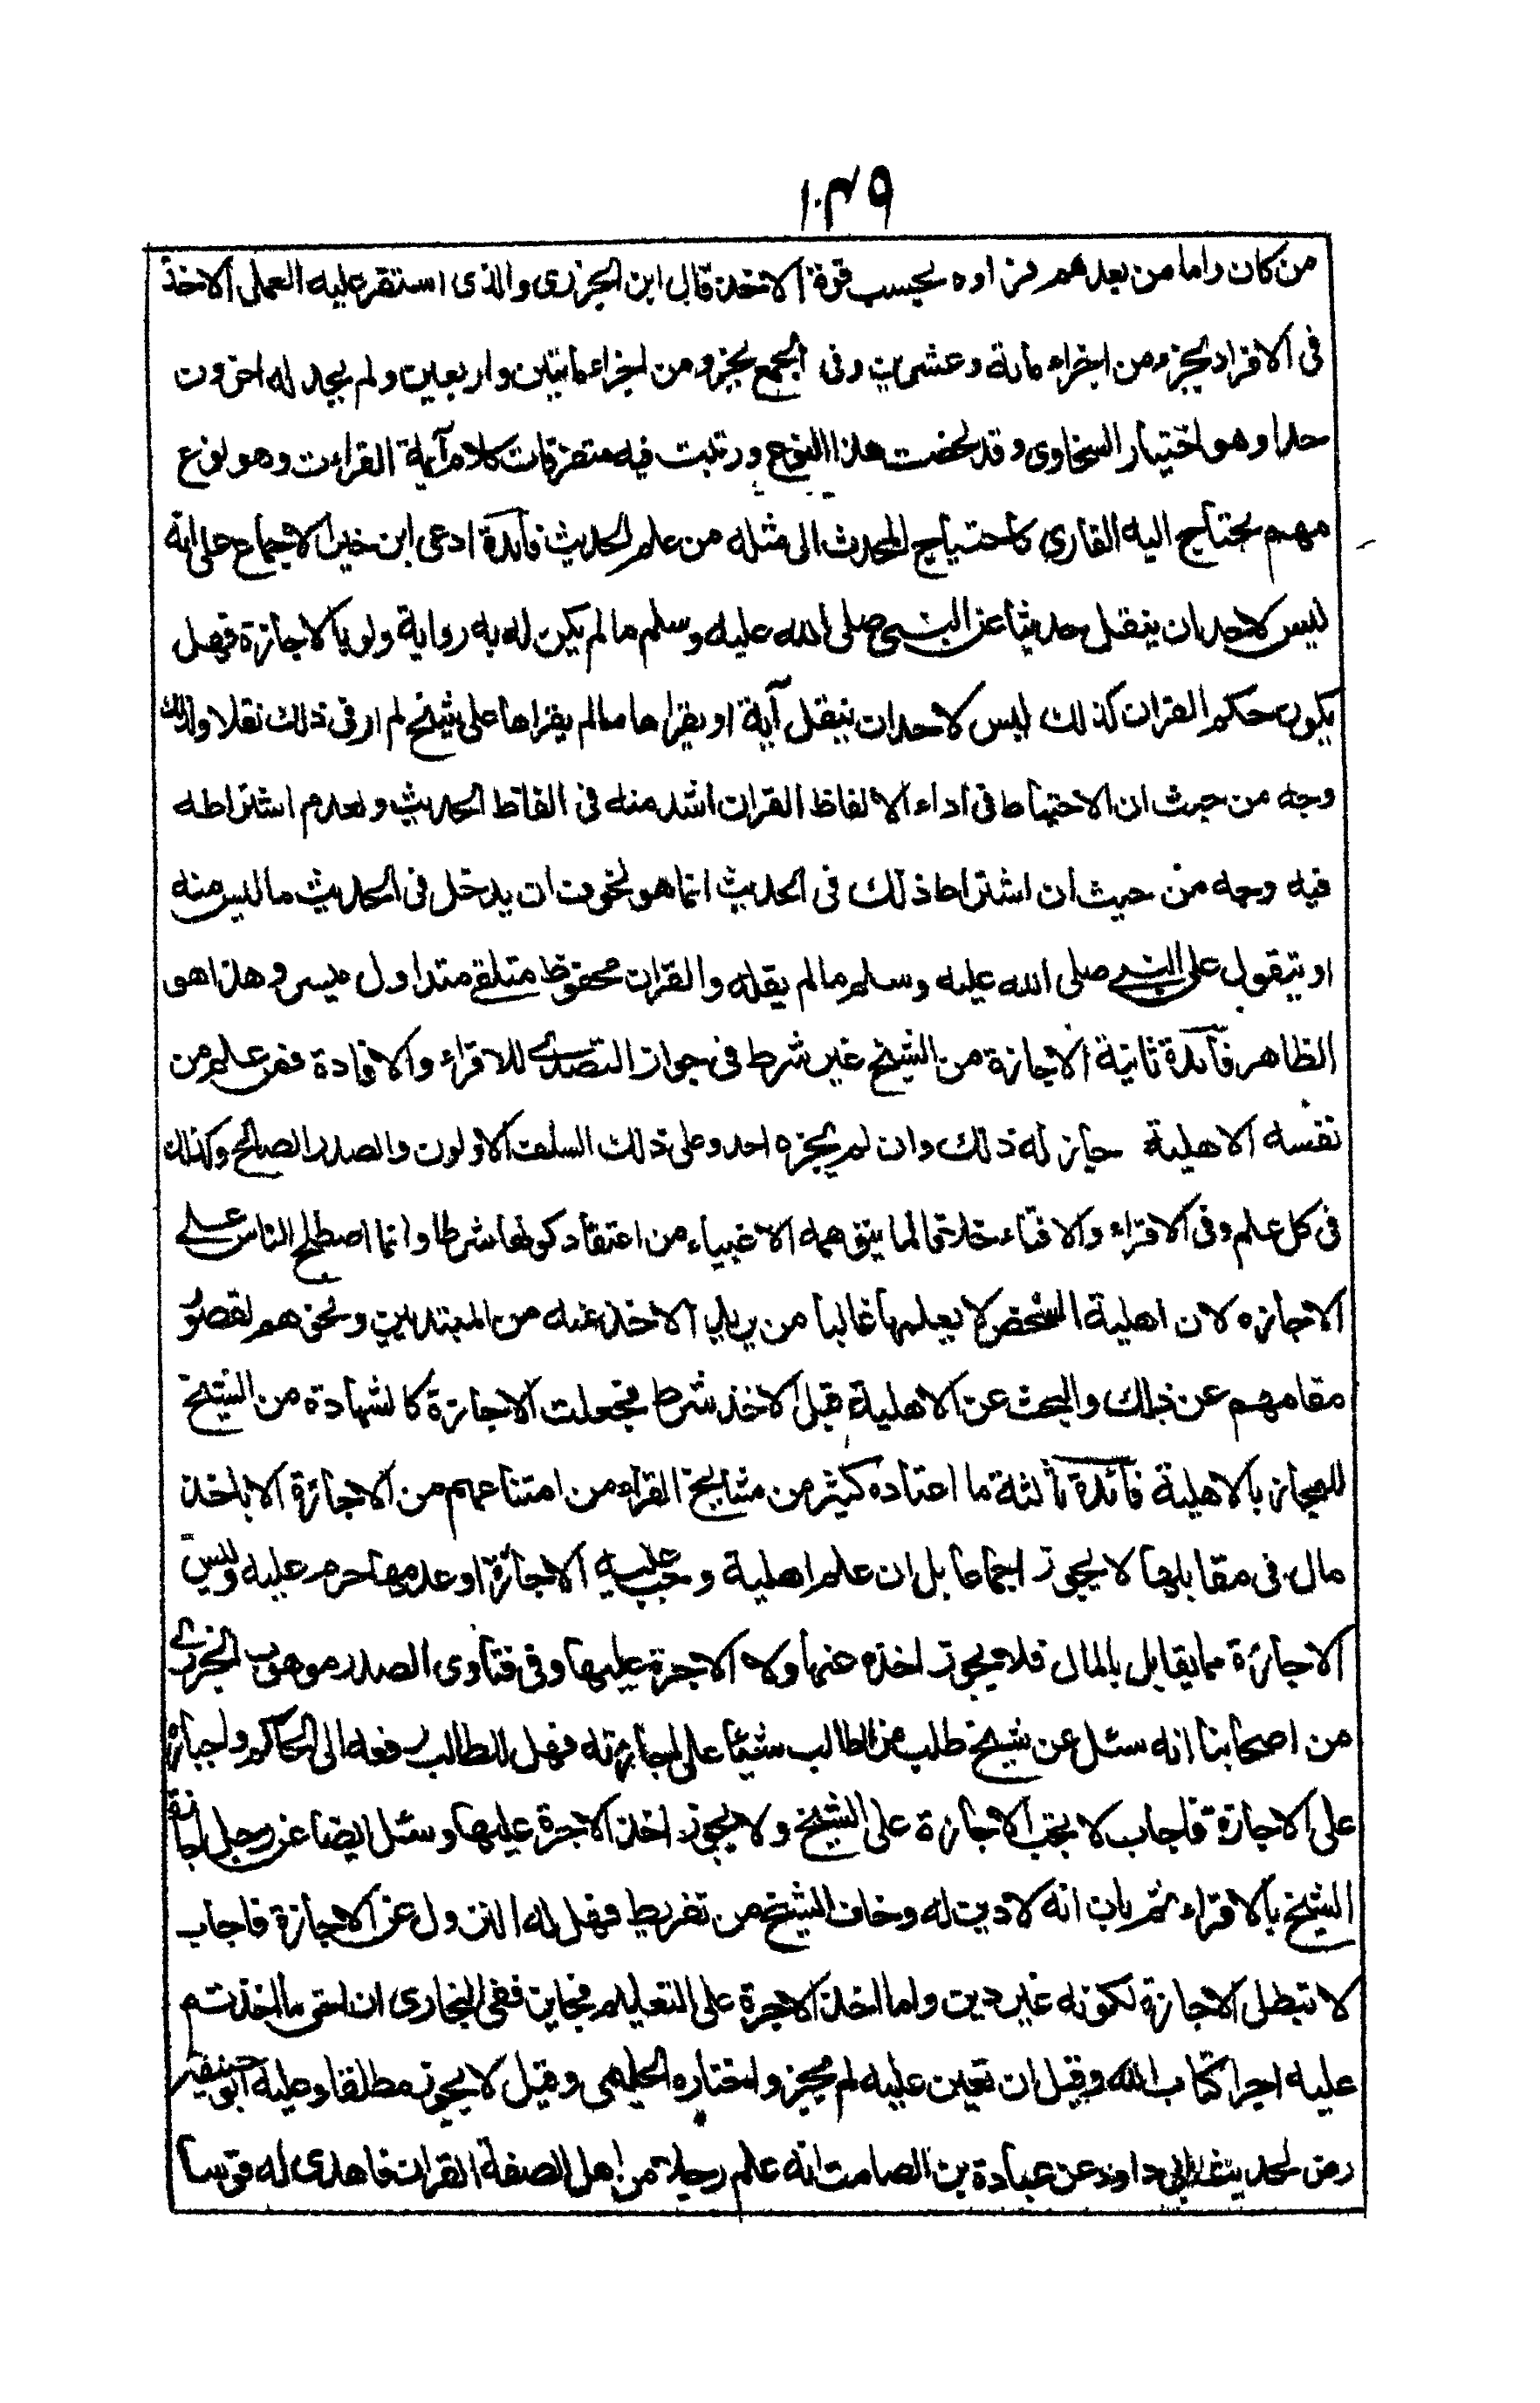 ١٠٣٩
من كان واما من بعدهم فزاوه بحسب قوة الاخذ قال ابن الجزرى والذى استقر عليه العمل الاخذ
فى الافراد بجزء من اجزاء مائة وعشرين وفى الجمع بجزء من اجزاء مائتين واربعين ولم يحد له اخرون
حدا وهو اختيار السخاوى وقد لخصت هذا النوع ورتبت فيه متفرقات كلام آئمة القراءت وهو نوع
مهم يحتاج اليه القارى كاحتياج المحدث الى مثله من علم الحديث فآئدة ادعى ابن خير الاجماع على انه
ليس لاحد ان ينقل حديثا عن النبى صلى الله عليه وسلم ما لم يكن له به رواية ولو بالاجازة فهل
يكون حكم القران كذلك ليس لاحد ان ينقل آية او يقراها مالم يقراها على شيخ لم ار فى ذلك نقلا ولذلك
وجه من حيث ان الاحتياط فى اداء الالفاظ القران اشد منه فى الفاظ الحديث ولعدم اشتراطه
فيه وجه من حيث ان اشتراط ذلك فى الحديث انما هو لخوف ان يدخل فى الحديث ما ليس منه
او يتقول على النبى صلى الله عليه وسلم ما لم يقله والقران محفوظ متلقى متداول ميسر وهذا هو
الظاهر فآئدة ثانية الاجازة من الشيخ غير شرط فى جواز التصدى للاقراء والافادة فمن علم من
نفسه الاهلية جاز له ذلك وان لم يجزه احد وعلى ذلك السلف الاولون والصدر الصالح وكذلك
فى كل علم وفى الاقراء والافتاء خلافا لما يتوهمه الاغبياء من اعتقاد كونها شرطا وانما اصطلح الناس على
الاجازه لان اهلية الشخص لا يعلمها غالبا من يريد الاخذ عنه من المبتدين ونحوهم لقصور
مقامهم عن ذلك والبحث عن الاهلية قبل الاخذ شرط فجعلت الاجازة كالشهادة من الشيخ
للمجاز بالاهلية فآئدة ثالثة ما اعتاده كثير من مشايخ القراء من امتناعهم من الاجازة الا باخذ
مال فى مقابلها لا يجوز اجماعا بل ان علم اهلية وجب عليه الاجازة او عدمها حرم عليه وليس
الاجازة مما يقابل بالمال فلا يجوز اخذه عنها ولا الاجرة عليها وفى فتاوى الصدر موهوب الجزرى
من اصحابنا انه سئل عن شيخ طلب من الطالب شيئا على اجازته فهل للطالب رفعه الى الحاكم واجباره
على الاجازة فاجاب لا يجب الاجازة على الشيخ ولا يجوز اخذ الاجرة عليها وسئل ايضا عن رجل اجازه
الشيخ بالاقراء ثم بان انه لا دين له وخاف الشيخ من تفريط فهل له النزول عن الاجازة فاجاب
لا تبطل الاجازة لكونه غير دين واما اخذ الاجرة على التعليم فجايز ففى البخارى ان احق ما اخذتم
عليه اجرا كتاب الله وقيل ان تعين عليه لم يجز واختاره الحليمى وقيل لا يجوز مطلقا وعليه ابو حنيفة
رض لحديث ابى داود عن عبادة بن الصامت انه علم رجلا من اهل الصفة القران فاهدى له قوسا